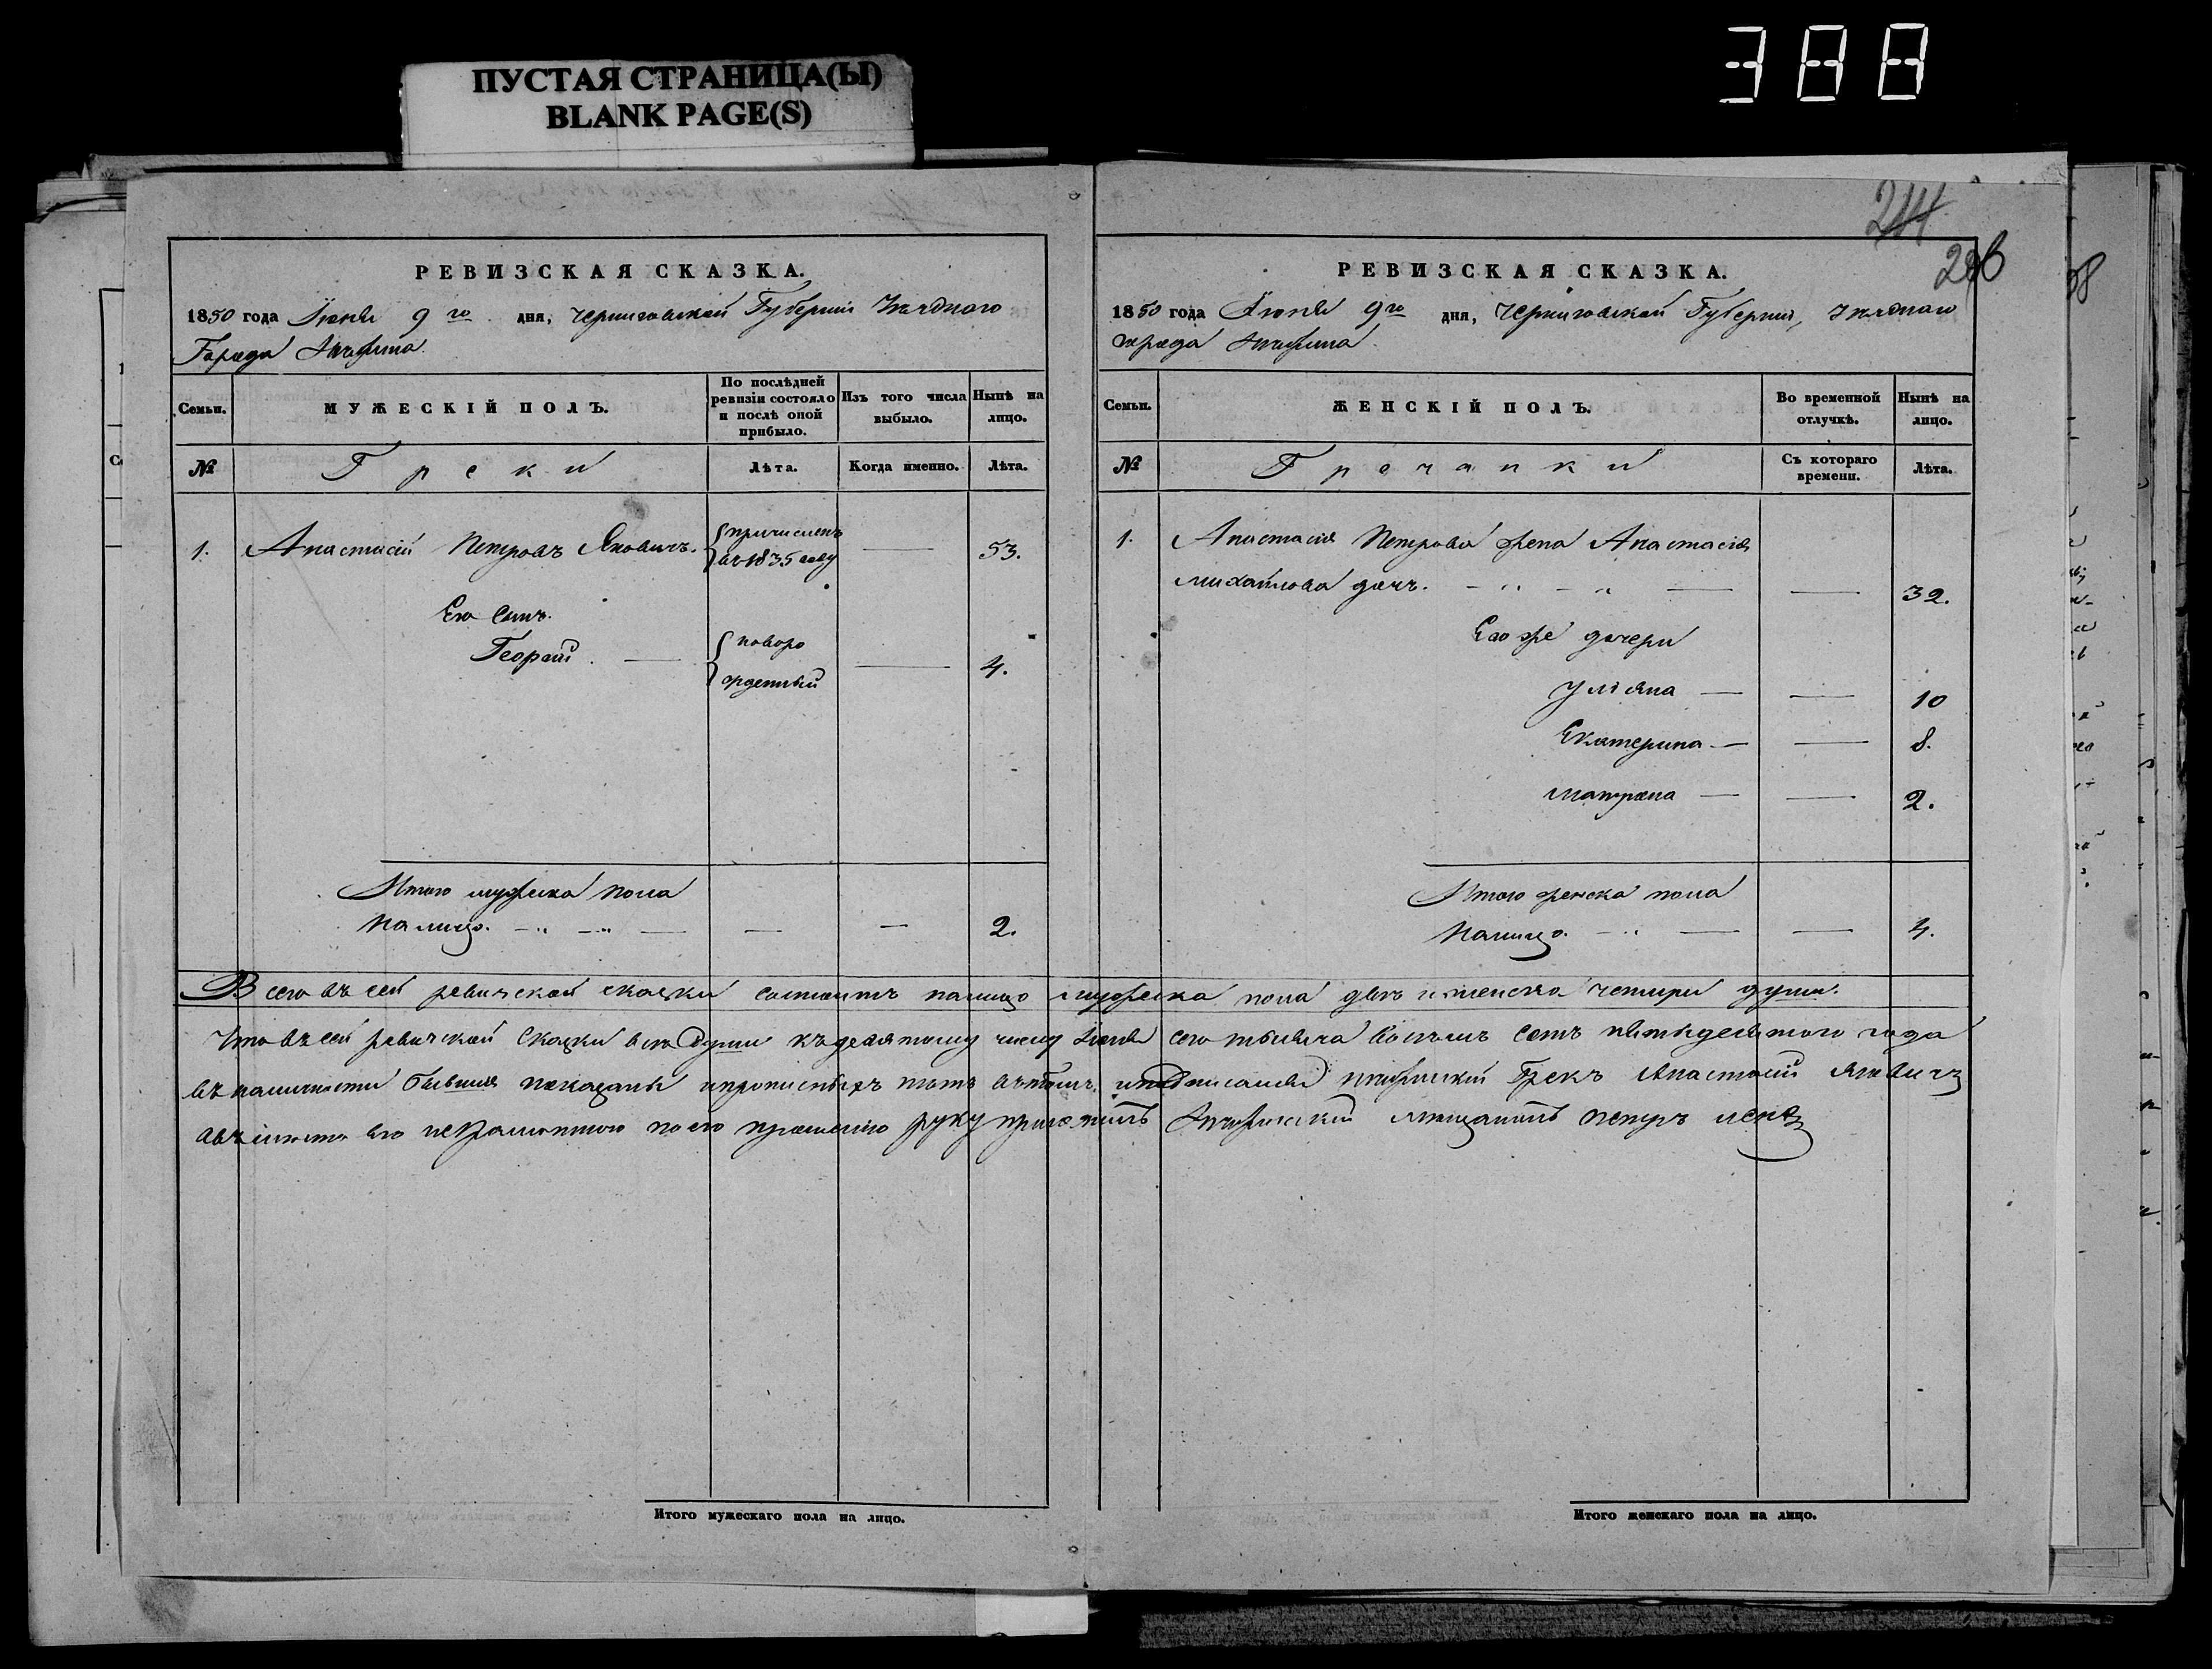 ПУСТАЯ СТРАНИЦА(Ы)
BLANK PAGE(S)
388
РЕВИЗСКАЯ СКАЗКА.
1850 года Июня 9го дня, Черниговской Губерніи Уѣзднаго
Города Нѣжина
Семьи.
МУЖЕСКІЙ ПОЛЪ.
По послѣдней ревизіи состояло и послѣ оной прибыло.
Изъ того числа выбыло.
Нынѣ на лицо.
№
Греки
Лѣта.
Когда именно.
Лѣта.
1. Анастасій Петровъ Яновичъ. причисленъ въ 1835 году — 53.
Его сынъ.
Георгій. — новорожденный — 4.
Итого мужеска пола
налицо. — — 2.
244
246
РЕВИЗСКАЯ СКАЗКА.
1850 года Июня 9го дня, Черниговской Губерніи, Уѣзднаго
города Нѣжина
Семьи.
ЖЕНСКІЙ ПОЛЪ.
Во временной отлучкѣ.
Нынѣ на лицо.
№
Гречанки
Съ котораго времени.
Лѣта.
1. Анастасія Петрова жена Анастасія
Михайлова дочь. — — 32.
Его же дочери
Уліяна — — 10
Екатерина — — 8.
Матрона — — 2.
Итого женска пола
налицо. — — 4.
Всего въ сей ревизской сказки состоитъ налицо мужеска пола двѣ и женска четыри души.
Что въ сей ревизской Сказки всѣ Души къ девятому числу Іюня сего тысяча восемь сотъ пятидесятого года
въ наличности бывшия показаны и прописныхъ нѣтъ въ томъ и подписался нѣжинскій Грекъ Анастасій Яновичъ
а вмѣсто его неграмотного по его прошенію руку приложилъ Нѣжинскій мѣщанинъ Петръ
Итого мужескаго пола на лицо.
Итого женскаго пола на лицо.